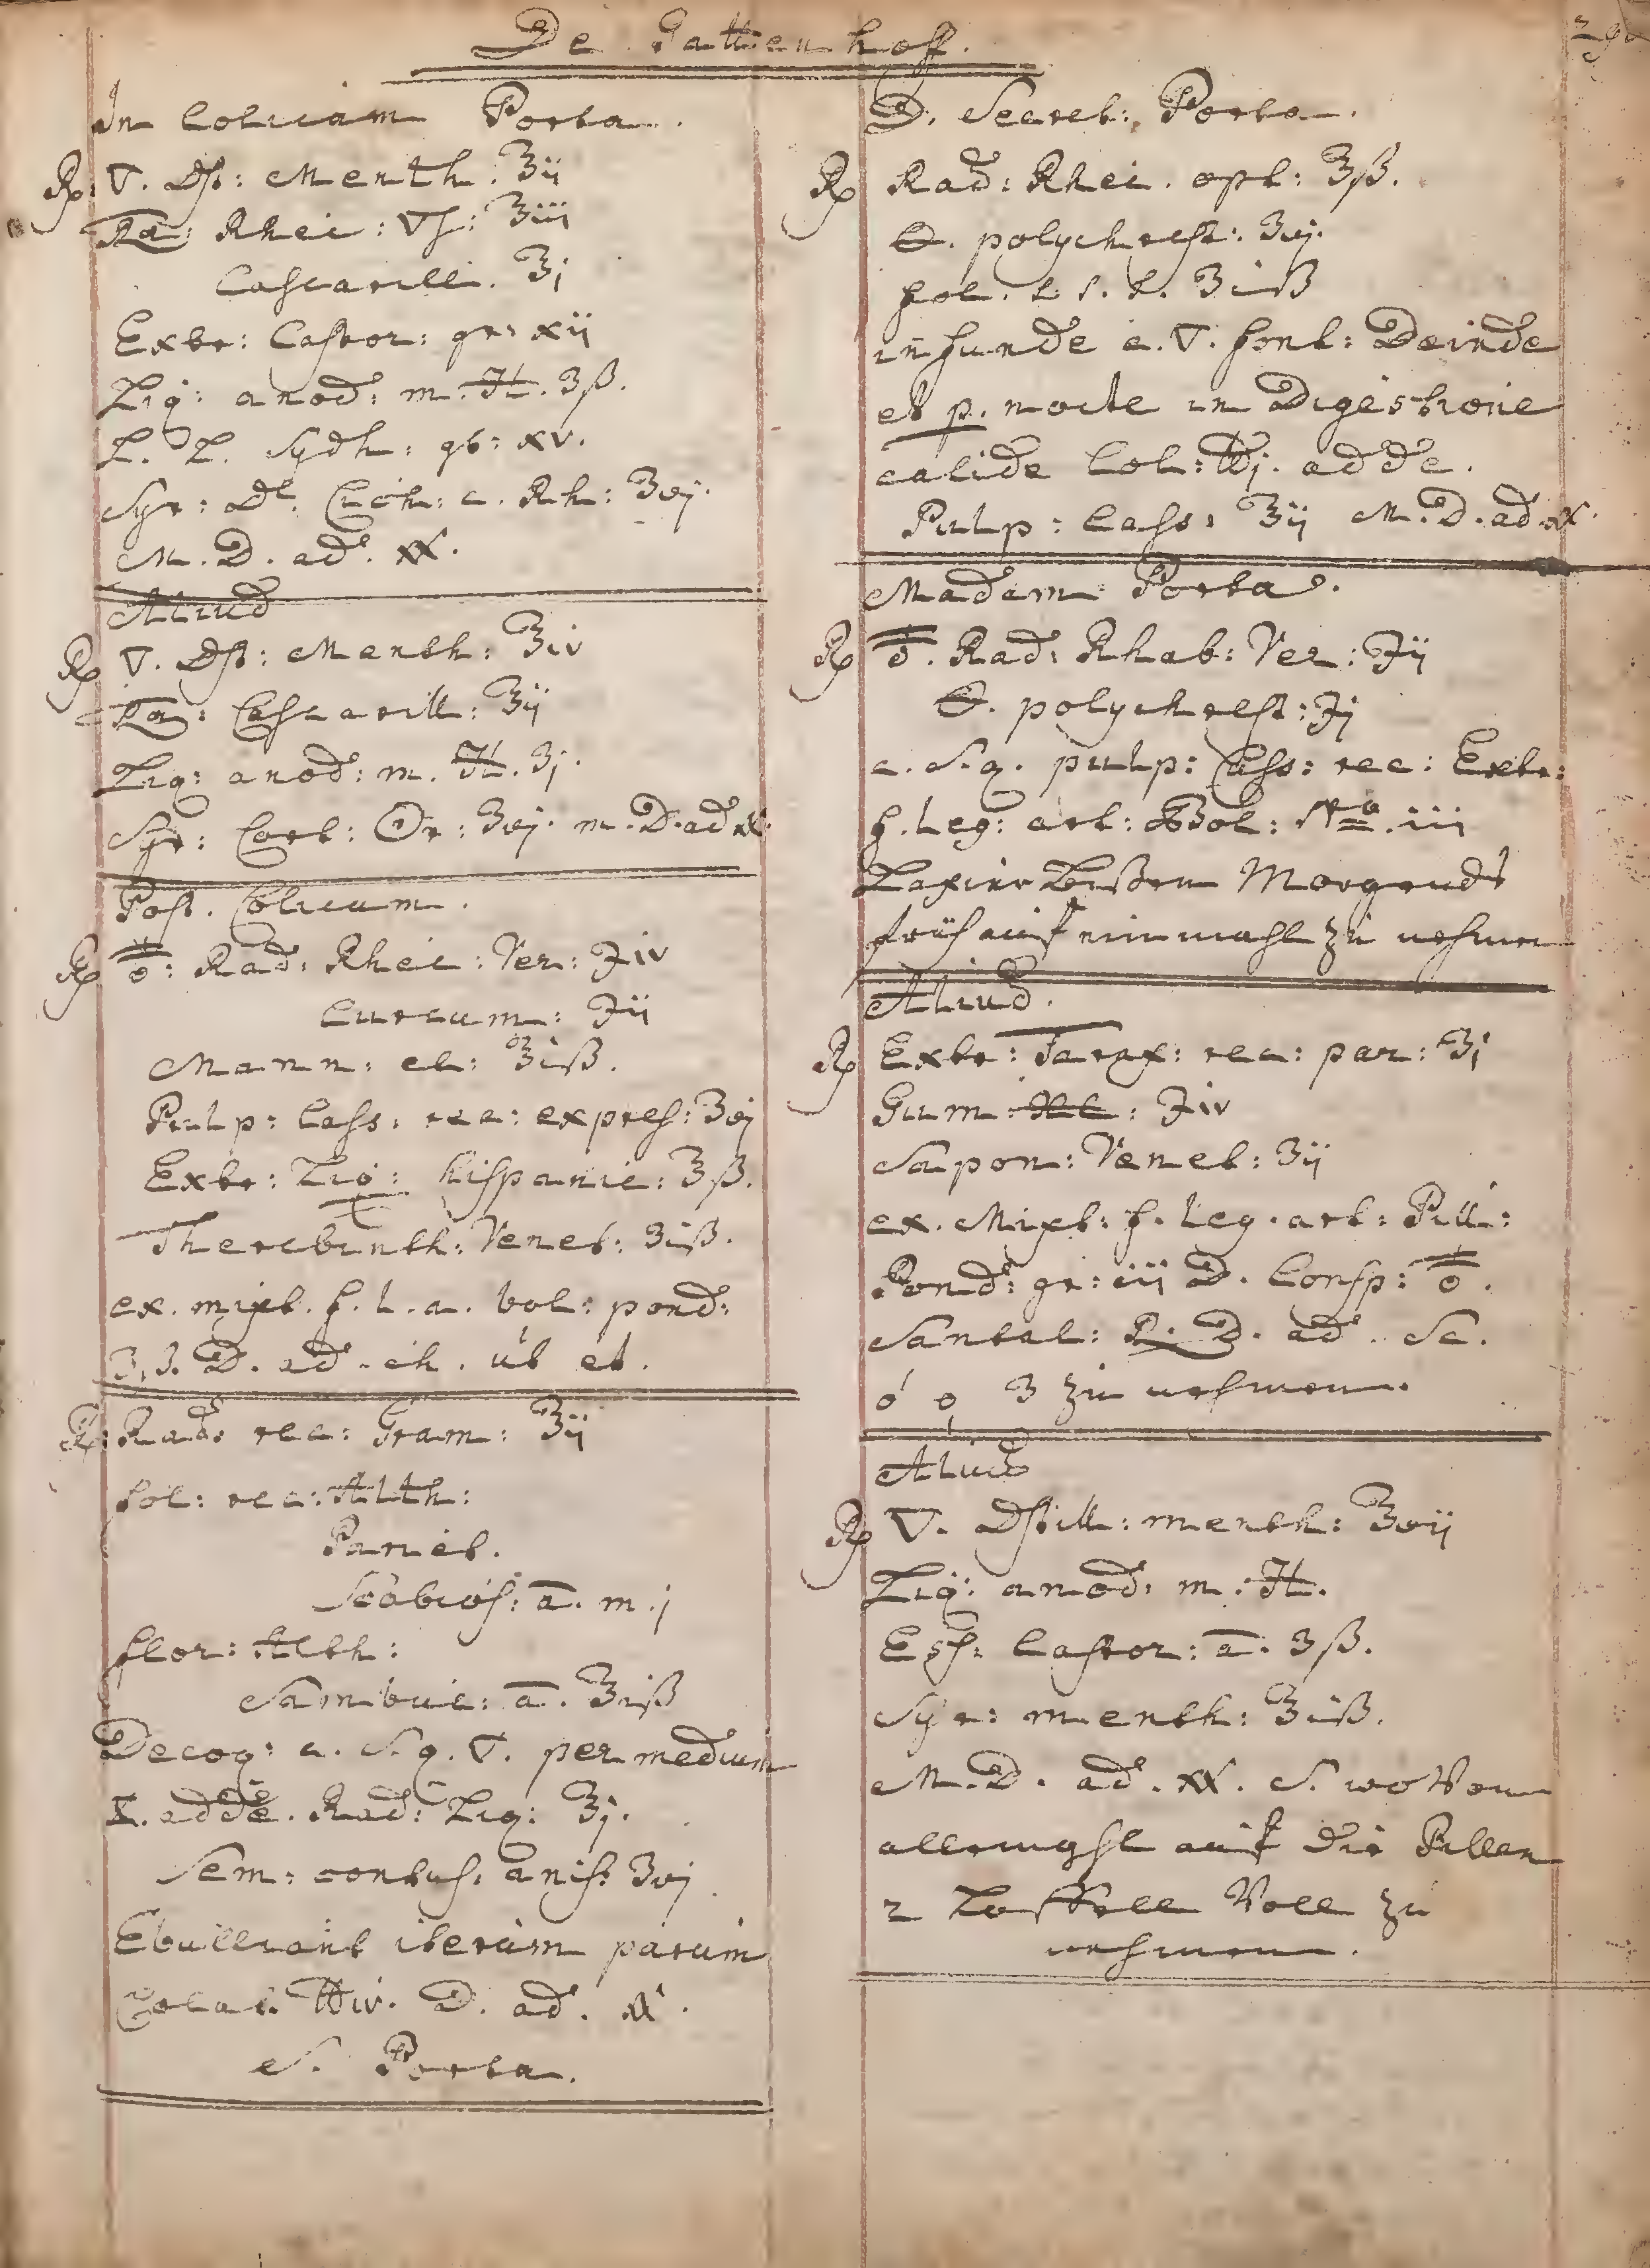 De Gattenhoff.
In Colicam Porta.
℞. 🜄. Dst: Menth. ℥ij
Ra: Rhei: Vs: ℥iij
Cascarill. ℥j
Extr: Castor: gr: xij
Liq: anod: m. H. ʒß.
L. L. Sydh: gt: xv.
Syr: De Cich: c. Rh: ʒvj.
M. D. ad.
Aliud
℞ 🜄. Dst: Menth: ℥iv
Ra: Cascarill: ℥ij
Liq: anod: m. H. ʒj.
Syr: Cort: Or: ʒvj. m. D. ad
Post. Colicam.
℞ Rad: Rhei: Ver: ℈iv
Curcum: ℈ij
Mann: el: ℥iß.
Pulp: Cass: rec: expres: ʒvj
Extr: Liq: hispanic: ʒß.
Therebinth: Venet: ʒiß.
ex. mixt. f. l. a. bol: pond:
D. ad. ch. ut et.
℞. Rad: rec: Gram: ℥ij
fol: rec: Alth:
Pariet.
Scabios: ā. m. j
flor: Alth:
Sambuc: ā. ℥iß
Decoq: c. S. q. 🜄. per medium
adde. Rad: Liq: ℥j.
Sem: contus: anis: ʒvj
Ebulliant iterum parum
Colat. ℔iv. D. ad.
S. Porta.
D. Secret: Porta.
℞ Rad: Rhei. opt: ℥ß.
polychrest: ʒvj.
fol. ℥iß
infunde c. 🜄. font: Deinde
et p. nocte in Digestione
calide Col: ℔j. adde.
Pulp: Cass: ℥ij M. D. ad
Madam: Porta.
℞ Rad: Rhab: Ver: ℈ij
polychrest: ℈j
c. S. q. pulp: Cass: rec: Extr:
f. Leg: art: Bol: No. iii
Laxier Bissen Morgends
früh auf einmahl zu nehmen
Aliud.
℞ Extr: Tarax: rec: par: ʒj
Gum ℈iv
Sapon: Venet: ʒij
ex. Mixt: f. Leg. art: Pill:
Pond: gr: iii D. Consp:
Santal: R. D. ad. Sc.
zu nehmen.
Aliud
℞ 🜄. Dstill: menth: ℥vij
Liq: anod: m: H.
Ess: Castor: ā. ʒß.
Syr: menth: ℥iß.
M. D. ad. S. wo Von
allemahl auf die Pillen
2 Loffell Voll zu
nehmen.